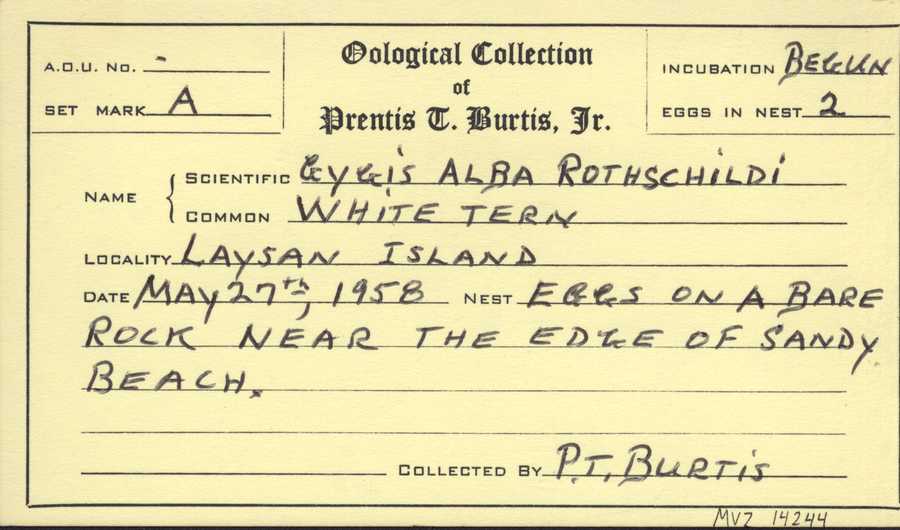 A.O.U. No. -
SET MARK A
Oological Collection
of
Prentis T. Burtis, Jr.
INCUBATION BEGUN
EGGS IN NEST 2
NAME
SCIENTIFIC GYGIS ALBA ROTHSCHILDI
COMMON WHITE TERN
LOCALITY LAYSAN ISLAND
DATE MAY 27th, 1958 NEST EGGS ON A BARE
ROCK NEAR THE EDGE OF SANDY
BEACH.
COLLECTED BY P.T. BURTIS
MVZ 14244